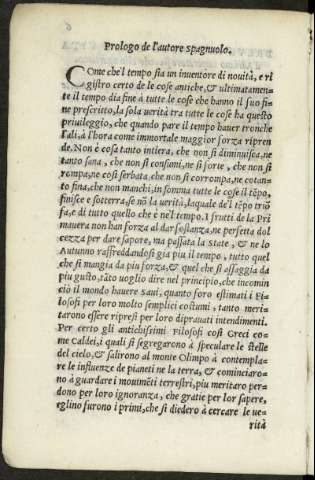 Prologo de l'autore spagnuolo.
COme che'l tempo sia un inventore di novità, e ri
gistro certo de le cose antiche, & ultimatamen-
te il tempo dia fine à tutte le cose che hanno il suo fi-
ne prescritto, la sola verità tra tutte le cose ha questo
privileggio, che quando pare il tempo haver tronche
l'ali, à l'hora come immortale maggior forza ripren
de. Non è cosa tanto intiera, che non si diminuisca, ne
tanto sana, che non si consumi, ne si forte, che non si
rompa, ne cosi serbata, che non si corrompa, ne cotan-
to fina, che non manchi, in somma tutte cose il tẽpo,
finisce e sotterra, se nõ la verità, laquale de'l tẽpo triõ
fa, e di tutto quello che è ne'l tempo. I frutti de la Pri
mavera non han forza al dar sostanza, ne perfetta dol
cezza per dare sapore, ma passata la State, & ne lo
Autunno raffreddandosi gia piu il tempo, tutto quel
che si mangia da piu forza, & quel che si assaggia da
piu gusto, tãto uoglio dire nel principio, che incomin
ciò il mondo hauere Saui, quanto foro estimati i Fi-
losofi per loro molto semplici costumi, tanto meri-
tarono essere ripresi per loro depravati intendimenti.
Per certo gli antichissimi Filosofi cosi Greci co-
me Caldei, i quali si segregarono à speculare le stelle
del cielo, & salirono al monte Olimpo à contempla-
re le influenze de pianeti ne la terra, & cominciaro-
no à guardare i movimẽti terrestri, piu meritaro per-
dono per loro ignoranza, che gratie per lor sapere,
eglino furono i primi, che si diedero à cercare le ue-
rità